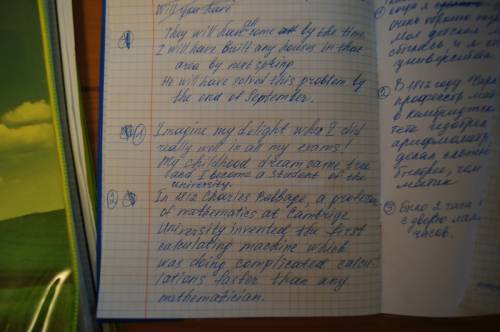 Will you have
They will have all come by the time
I will have built any houses in that
area by next spring.
He will have solved this problem by
the end of September.
1 Imagine my delight when I did
really well in all my exams!
My childhood dream came true
and I become a student of the
university.
2 In 1812 Charles Babbage, a professor
of mathematics at Cambrige
University invented the first
calculating machine which
was doing complicated calcu-
lations faster than any
mathematician.
когда я
очень хорошо
Моя детская
сбылась, и я
университета.
2 В 1812 году
профессор
в
чего
арифмометр
делал
быстрее, чем
3 Было 2 часа
с двумя
часов.